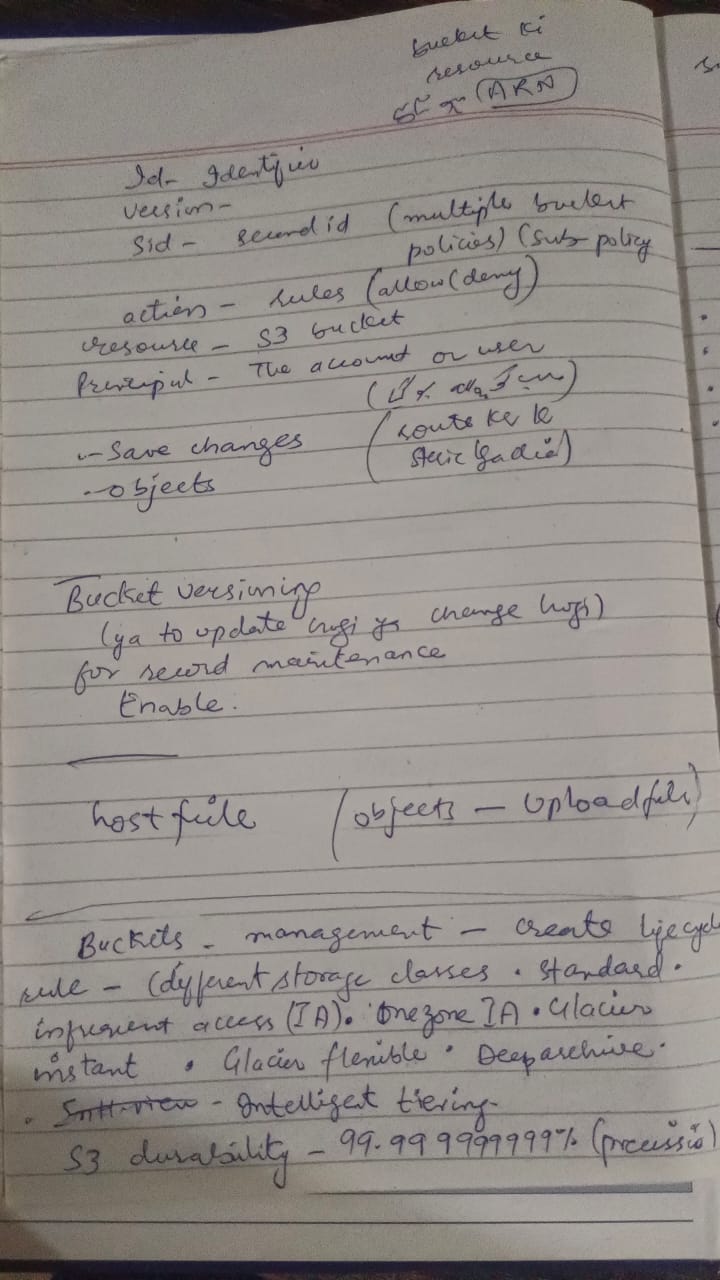 bucket ki
resource
ARN
Id- Identifier
version-
Sid - second id (multiple bucket
policies) (sub policy
action - rules (allow/deny)
resource - S3 bucket
Principal - The account or user
(route ke k
- Save changes
- objects
Bucket versioning
(ya to update hogi ya change hogi)
for record maintenance
Enable.
host file (objects - Upload file)
Buckets - management - create lifecycle
rule - (different storage classes . Standard .
infrequent access (IA). One zone IA . Glacier
instant . Glacier flexible . Deep archive .
. - Intelligent tiering.
S3 durability - 99.999999999%